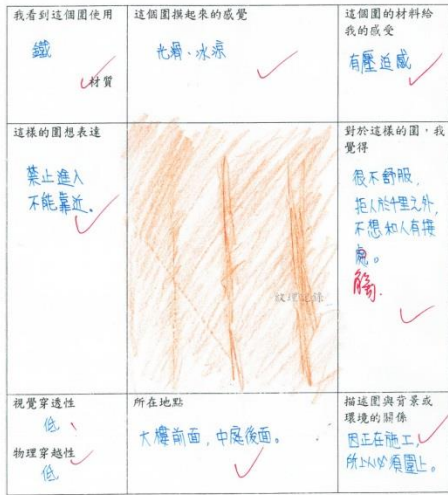 我看到這個圍使用
鐵
材質
這個圍摸起來的感覺
光滑、冰涼
這個圍的材料給
我的感受
有壓迫感
這樣的圍想表達
禁止進入
不能靠近。
紋理記錄
對於這樣的圍,我
覺得
很不舒服,
拒人於千里之外,
不想和人有接
處。
觸.
視覺穿透性
低、
物理穿越性
低
所在地點
大樓前面,中庭後面。
描述圍與背景或
環境的關係
因正在施工,
所以必須圍上。